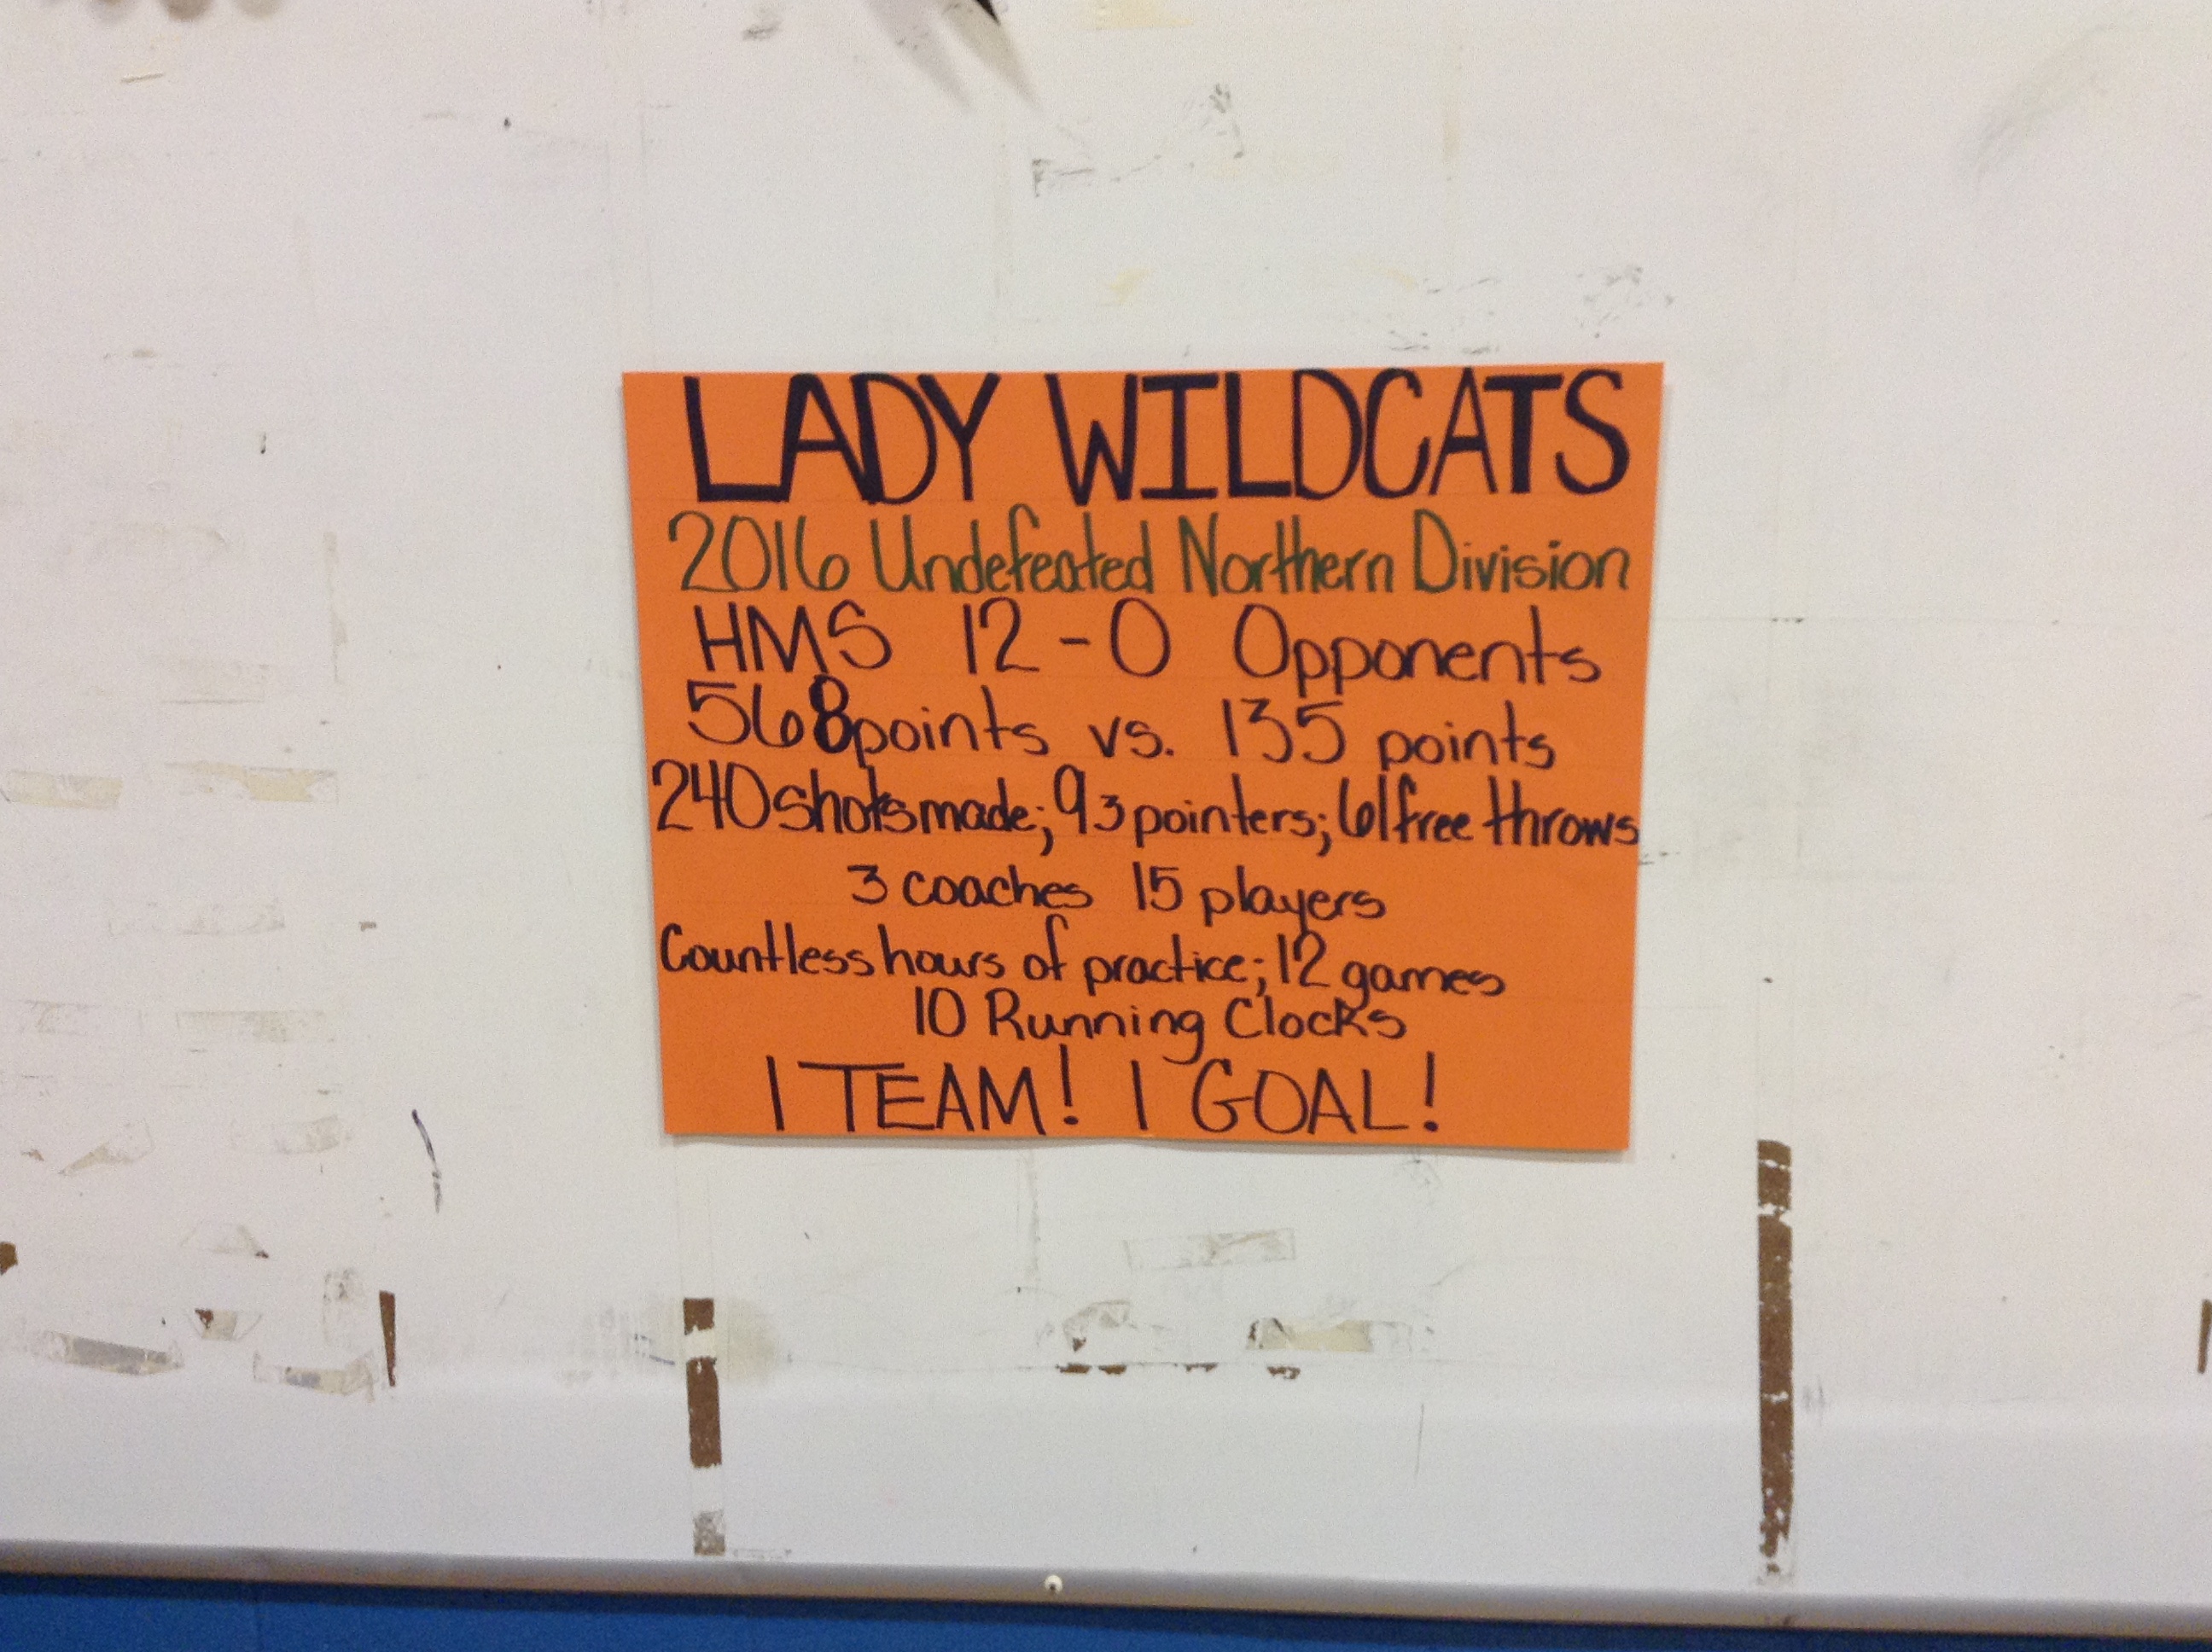 LADY WILDCATS
2016 Undefeated Northern Division
HMS 12-0 Opponents
568 points vs. 135 points
240 shots made; 9 3 pointers; 61 free throws
3 coaches 15 players
Countless hours of practice; 12 games
10 Running Clocks
1 TEAM! 1 GOAL!